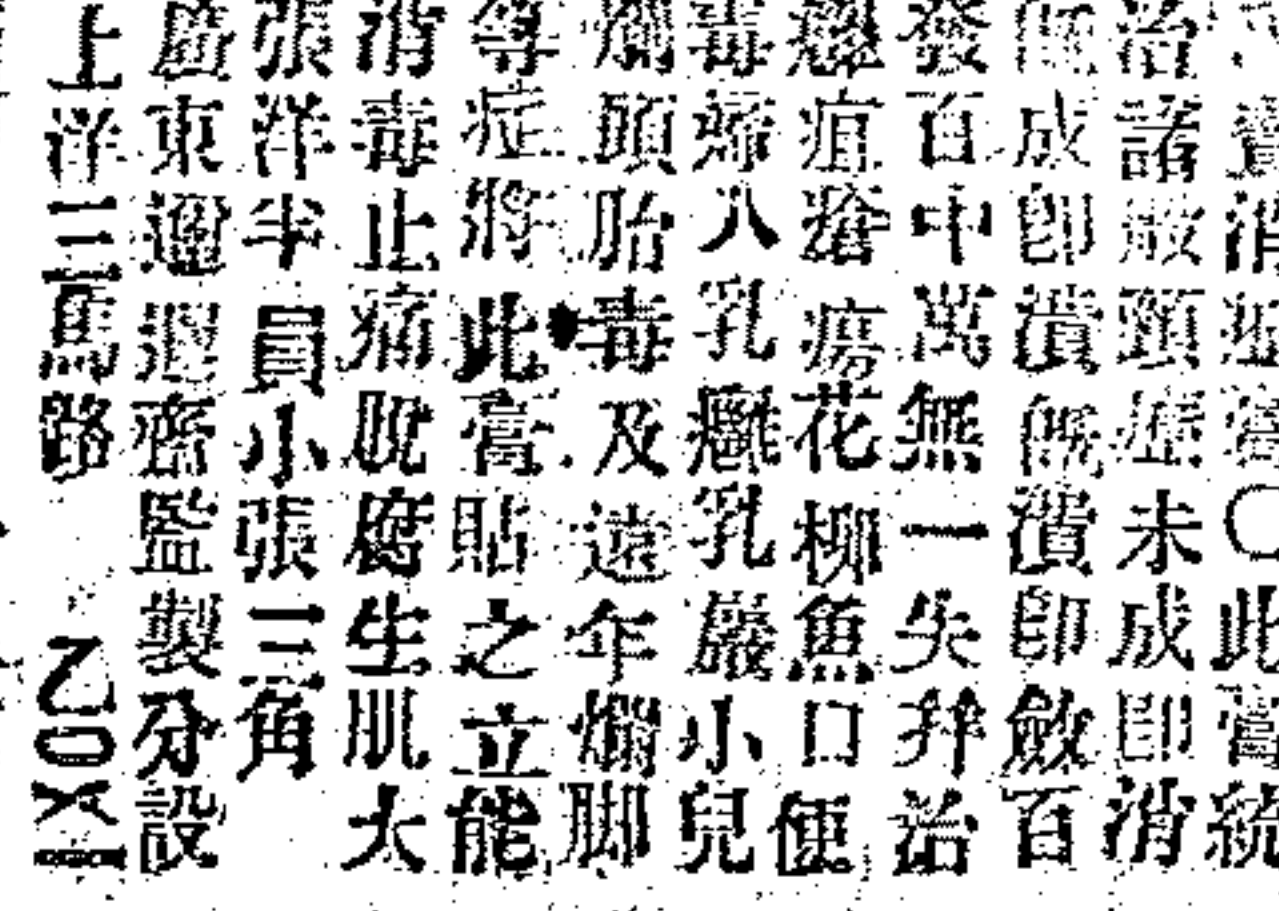 消膏〇此膏統
治諸般頸癧未成即消
既成即潰既潰即斂百
發百中萬無一失并治
癰疽瘡瘍花柳魚口便
毒婦人乳癰乳巖小兒
爛頭胎毒及遠年爛脚
等症將此膏貼之立能
消毒止痛脫腐生肌大
張洋半員小張三角
廣東遐齋監製分設
上洋三馬路